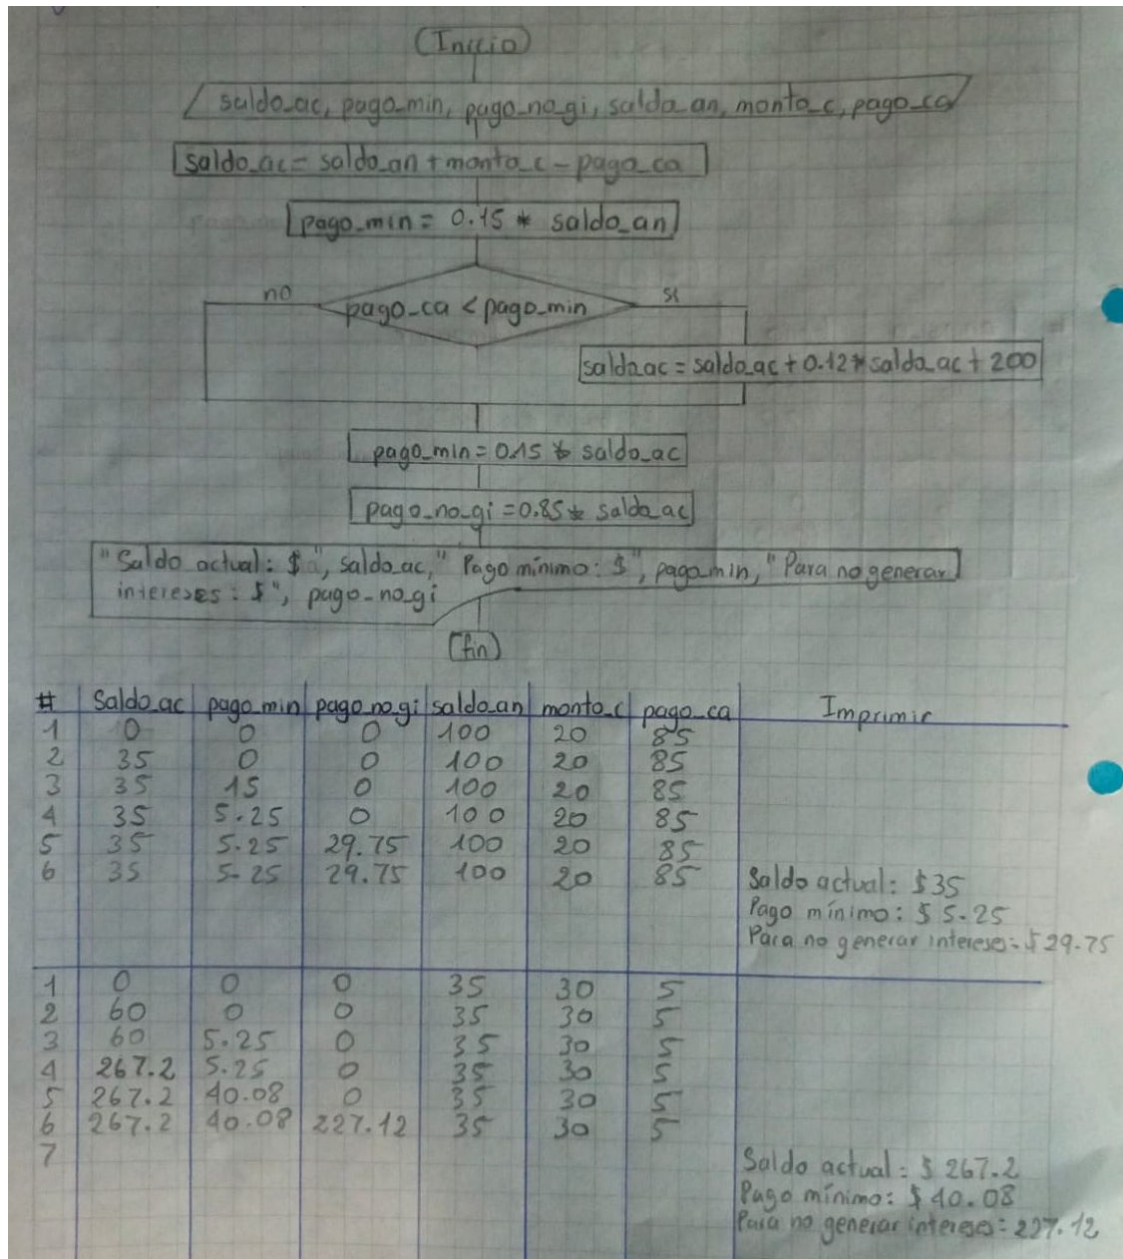 Inicio
saldo_ac, pago_min, pago_no_gi, saldo_an, monto_c, pago_ca
saldo_ac = saldo_an + monto_c - pago_ca
pago_min = 0.15 * saldo_an
no
pago_ca < pago_min
si
saldo_ac = saldo_ac + 0.12 * saldo_ac + 200
pago_min = 0.15 * saldo_ac
pago_no_gi = 0.85 * saldo_ac
"Saldo actual: $", saldo_ac, "Pago mínimo: $", pago_min, "Para no generar
intereses: $", pago_no_gi
fin
# Saldo_ac pago_min pago_no_gi saldo_an monto_c pago_ca Imprimir
1 0 0 0 100 20 85
2 35 0 0 100 20 85
3 35 15 0 100 20 85
4 35 5.25 0 100 20 85
5 35 5.25 29.75 100 20 85
6 35 5.25 29.75 100 20 85 Saldo actual: $35
Pago mínimo: $5.25
Para no generar intereses: $29.75
1 0 0 0 35 30 5
2 60 0 0 35 30 5
3 60 5.25 0 35 30 5
4 267.2 5.25 0 35 30 5
5 267.2 40.08 0 35 30 5
6 267.2 40.08 227.12 35 30 5
7 Saldo actual: $267.2
Pago mínimo: $40.08
Para no generar intereses: 227.12